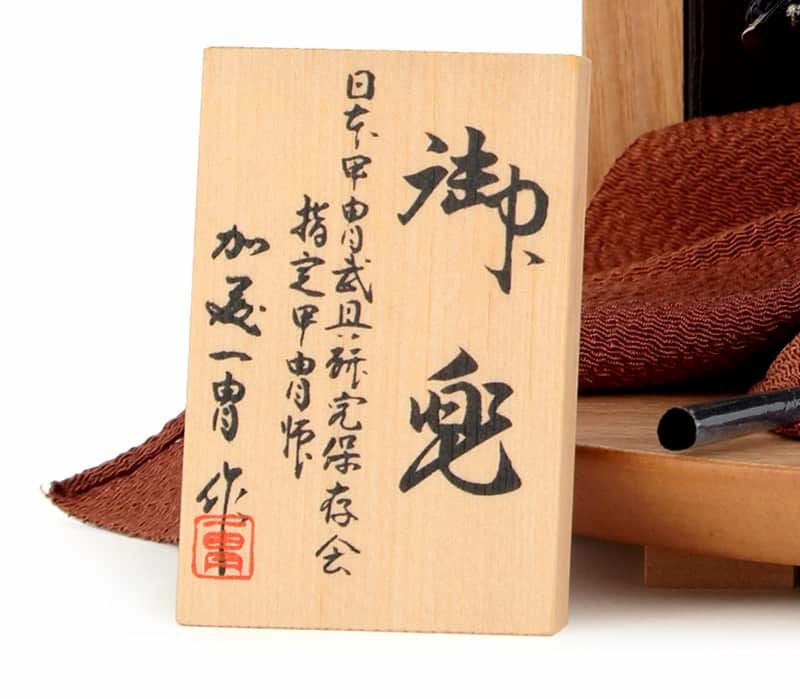 御兜
日本甲冑武具研究保存会
指定甲冑師
加藤一冑作
一冑